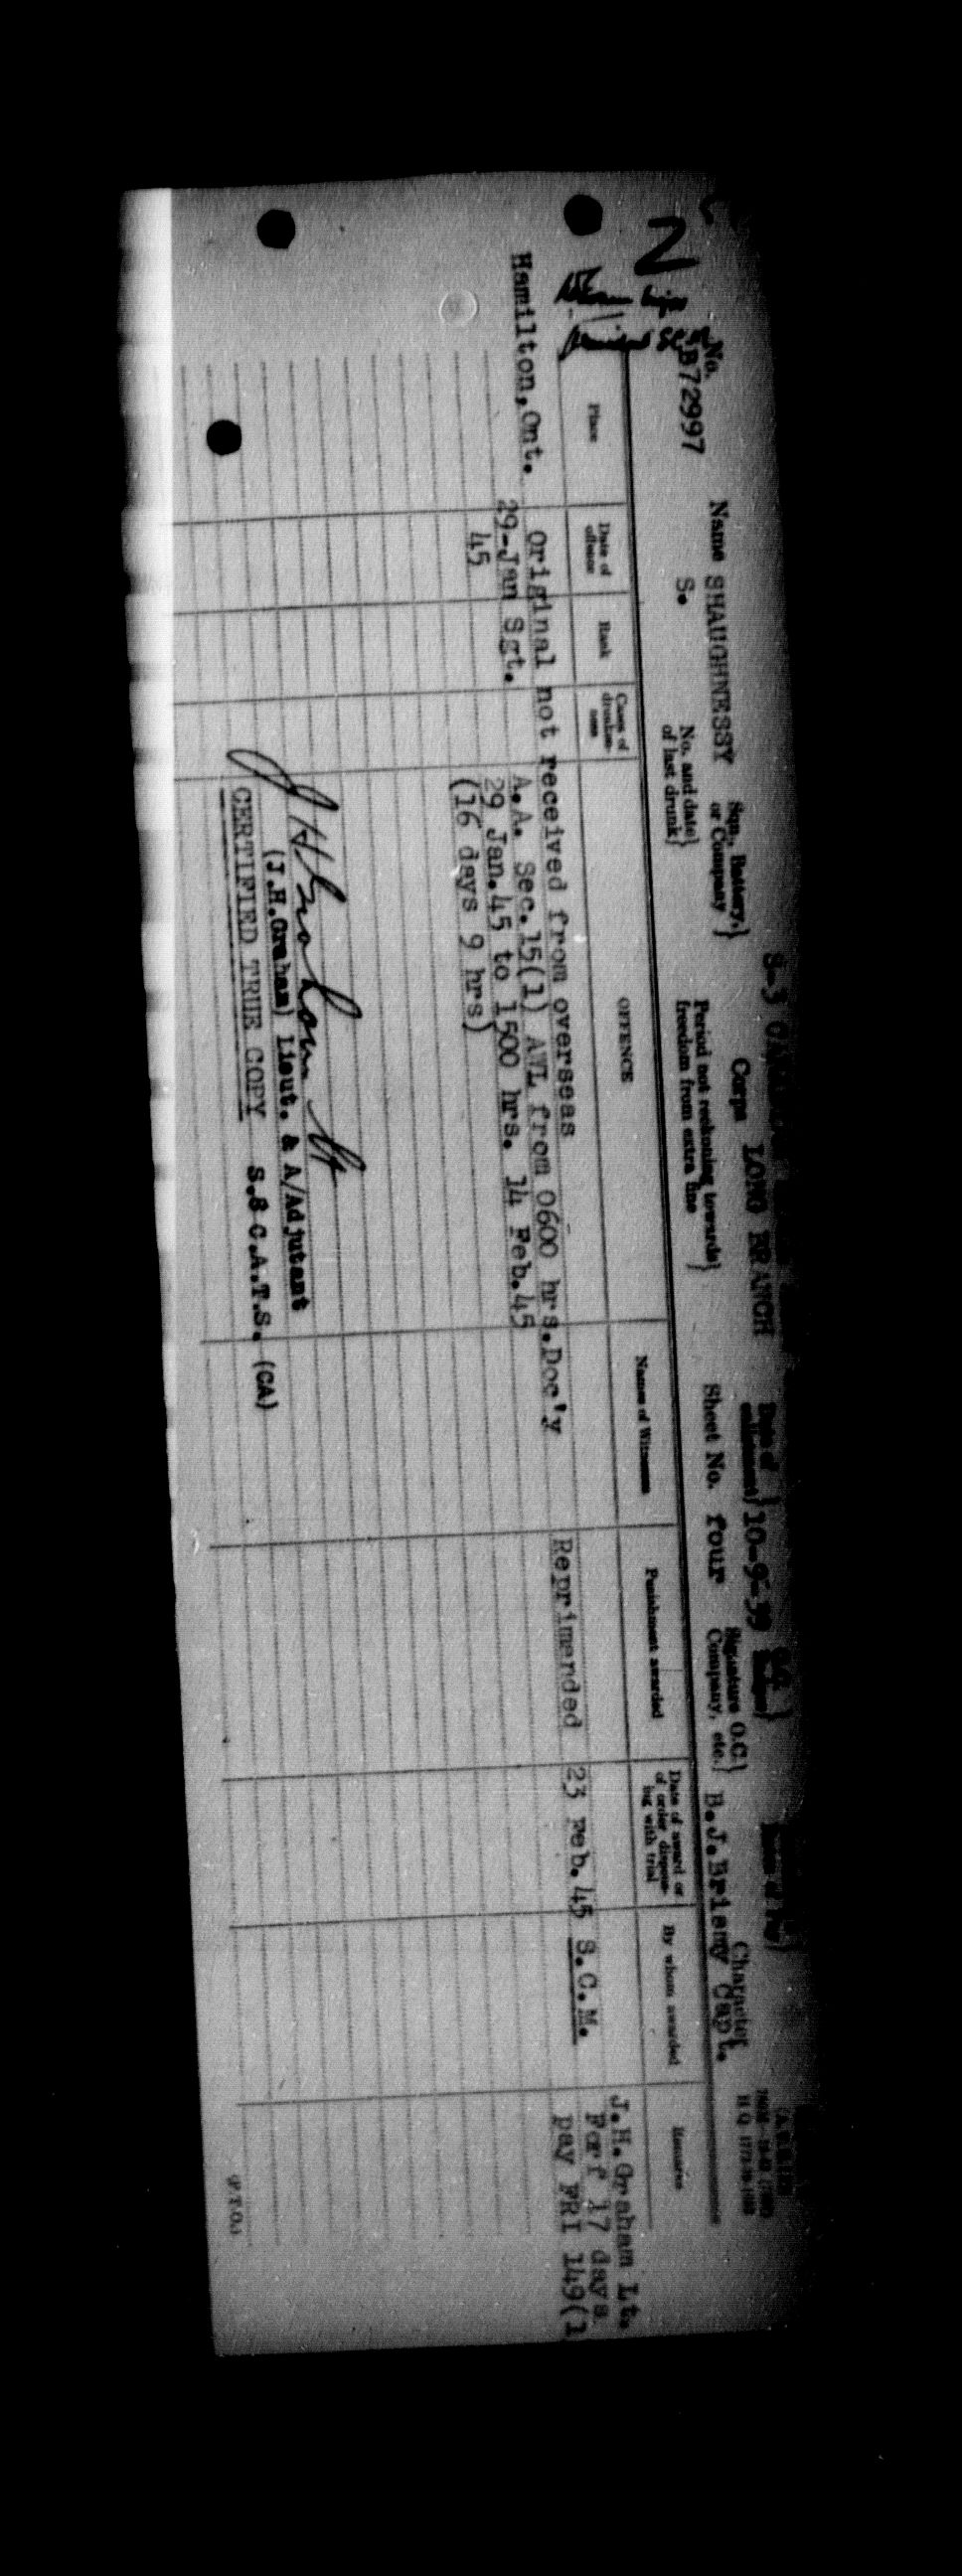 S-3 LONG BRANCH
No. B72997 Name SHAUGHNESSY Sqn., Battery, or Company} Corps Sheet No. four Signature O.C. Company, etc.} Character
10-9-39
S. No. and date of last drunk} Period not reckoning towards freedom from extra fine} Capt.
Place
Date of offence
Rank
Cases of drunkenness
OFFENCE
Names of Witnesses
Punishment awarded
Date of award or of order dispensing with trial
By whom awarded
Remarks
Original not received from overseas
Hamilton, Ont. 29-Jan Sgt. A.A. Sec.15(1) AWL from 0600 hrs. Doc'y Reprimanded 23 Feb.45 S.C.M. J.H.Graham Lt.
45 29 Jan.45 to 1500 hrs. 14 Feb.45 Forf 17 days
(16 days 9 hrs) pay FRI 149(1
J H Graham Lt
(J.H.Graham) Lieut. & A/Adjutant
CERTIFIED TRUE COPY S.8 C.A.T.S. (CA)
(P.T.O.)